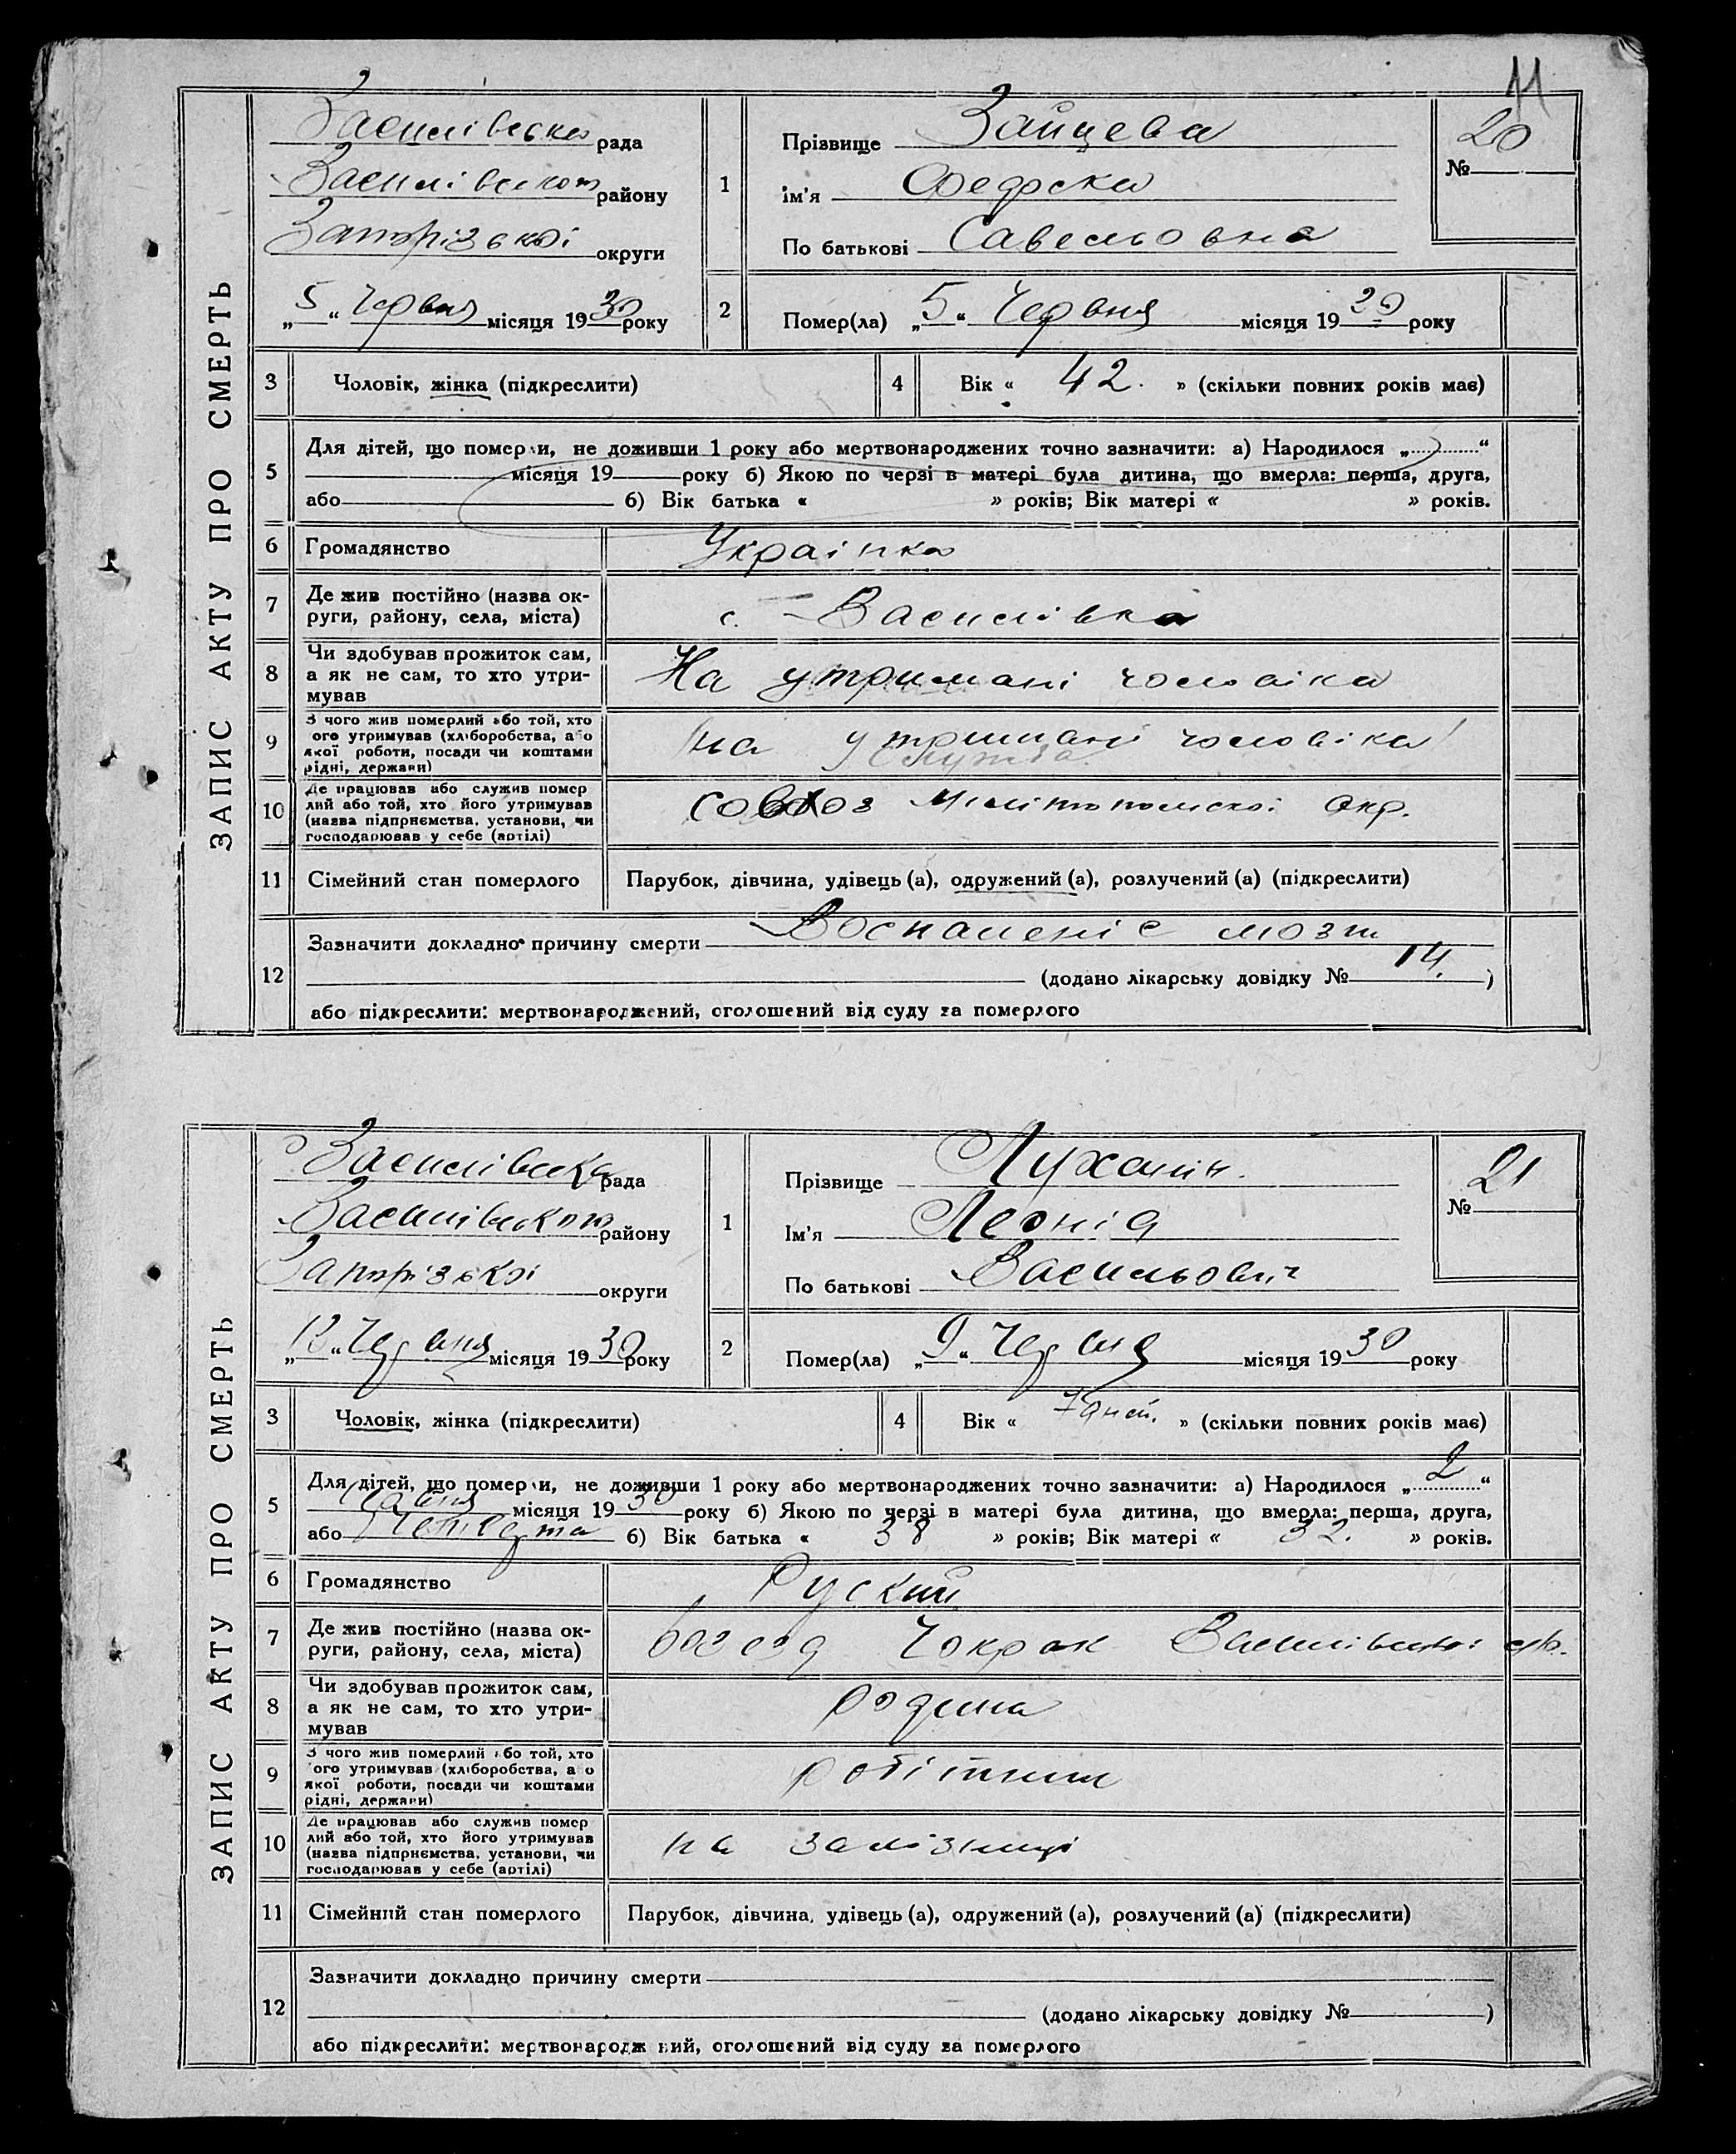 11
ЗАПИС АКТУ ПРО СМЕРТЬ
Василівська рада
Василівського району
Запорізької округи
„5“ Червня місяця 1930 року
1
Прізвище Зайцева
ім'я Федоска
По батькові Савельовна
20
№
2
Помер(ла) „5“ Червня місяця 1930 року
3
Чоловік, жінка (підкреслити)
4
Вік « 42. » (скільки повних років має)
5
Для дітей, що померли, не доживши 1 року або мертвонароджених точно зазначити: а) Народилося „ “
місяця 19 року б) Якою по черзі в матері була дитина, що вмерла: перша, друга,
або б) Вік батька « » років; Вік матері « » років.
6
Громадянство
Українка
7
Де жив постійно (назва ок-
руги, району, села, міста)
с. Василівка
8
Чи здобував прожиток сам,
а як не сам, то хто утри-
мував
На утримані чоловіка
9
З чого жив померлий або той, хто
ого утримував (хліборобства, або
якої роботи, посади чи коштами
рідні, держави)
на утримані чоловіка
Служба
10
Де працював або служив помер
лий або той, хто його утримував
(назва підприємства, установи, чи
господарював у себе (артілі)
совхоз Мелітопольскої окр.
11
Сімейний стан померлого
Парубок, дівчина, удівець (а), одружений (а), розлучений (а) (підкреслити)
12
Зазначити докладно причину смерти Воспаленіе мозги
(додано лікарську довідку № 14. )
або підкреслити: мертвонароджений, оголошений від суду за померлого
ЗАПИС АКТУ ПРО СМЕРТЬ
Василівська рада
Василівського району
Запорізької округи
„12“ Червня місяця 1930 року
1
Прізвище Луханін.
Ім'я Леонід
По батькові Васильович
21
№
2
Помер(ла) „9“ Червня місяця 1930 року
3
Чоловік, жінка (підкреслити)
4
Вік « 7 дней. » (скільки повних років має)
5
Для дітей, що померли, не доживши 1 року або мертвонароджених точно зазначити: а) Народилося „2“
місяця 1930 року б) Якою по черзі в матері була дитина, що вмерла: перша, друга,
або Четверта б) Вік батька « 38 » років; Вік матері « 32. » років.
6
Громадянство
Руский
7
Де жив постійно (назва ок-
руги, району, села, міста)
розезд Чокрак Василівської
8
Чи здобував прожиток сам,
а як не сам, то хто утри-
мував
родина
9
З чого жив померлий або той, хто
ого утримував (хліборобства, а о
якої роботи, посади чи коштами
рідні, держави)
робітник
10
Де працював або служив помер
лий або той, хто його утримував
(назва підприємства, установи, чи
господарював у себе (артілі)
на залізниці
11
Сімейний стан померлого
Парубок, дівчина, удівець (а), одружений (а), розлучений (а) (підкреслити)
12
Зазначити докладно причину смерти
(додано лікарську довідку № )
або підкреслити: мертвонародж ний, оголошений від суду за померлого